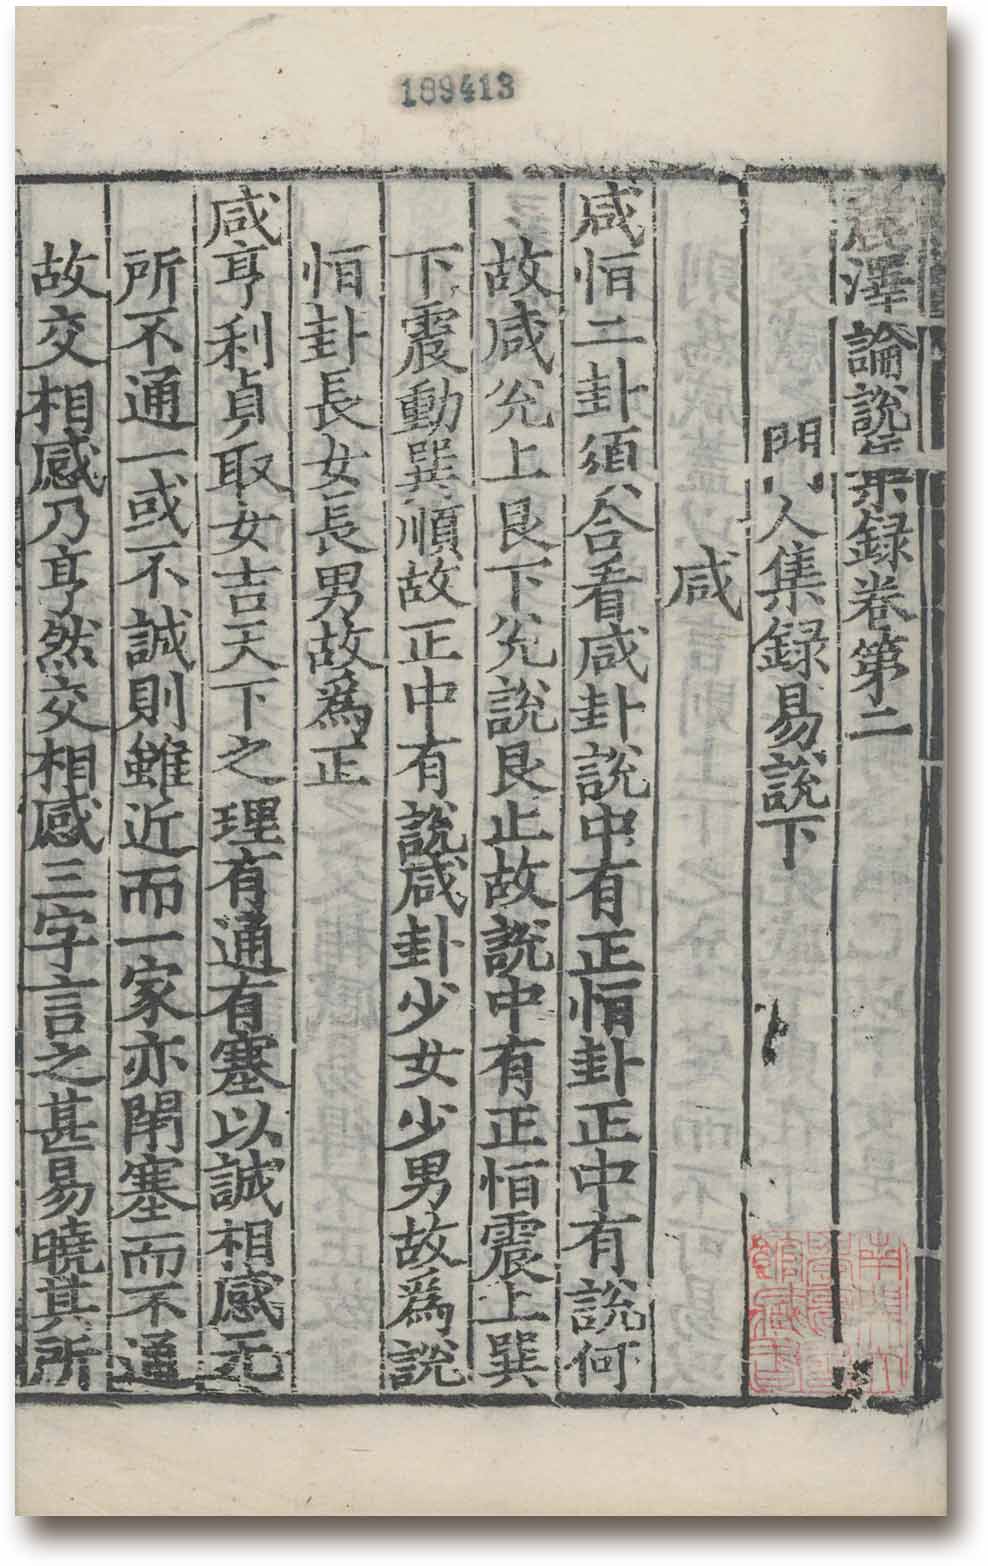 189413
麗澤論說集録卷第二
門人集録易說下
咸
咸恒二卦須合看咸卦說中有正恒卦正中有說何
故咸兊上艮下兊說艮止故說中有正恒震上巽
下震動巽順故正中有說咸卦少女少男故爲說
恒卦長女長男故爲正
咸亨利貞取女吉天下之理有通有塞以誠相感无
所不通一或不誠則雖近而一家亦閉塞而不通
故交相感乃亨然交相感三字言之甚易曉其所